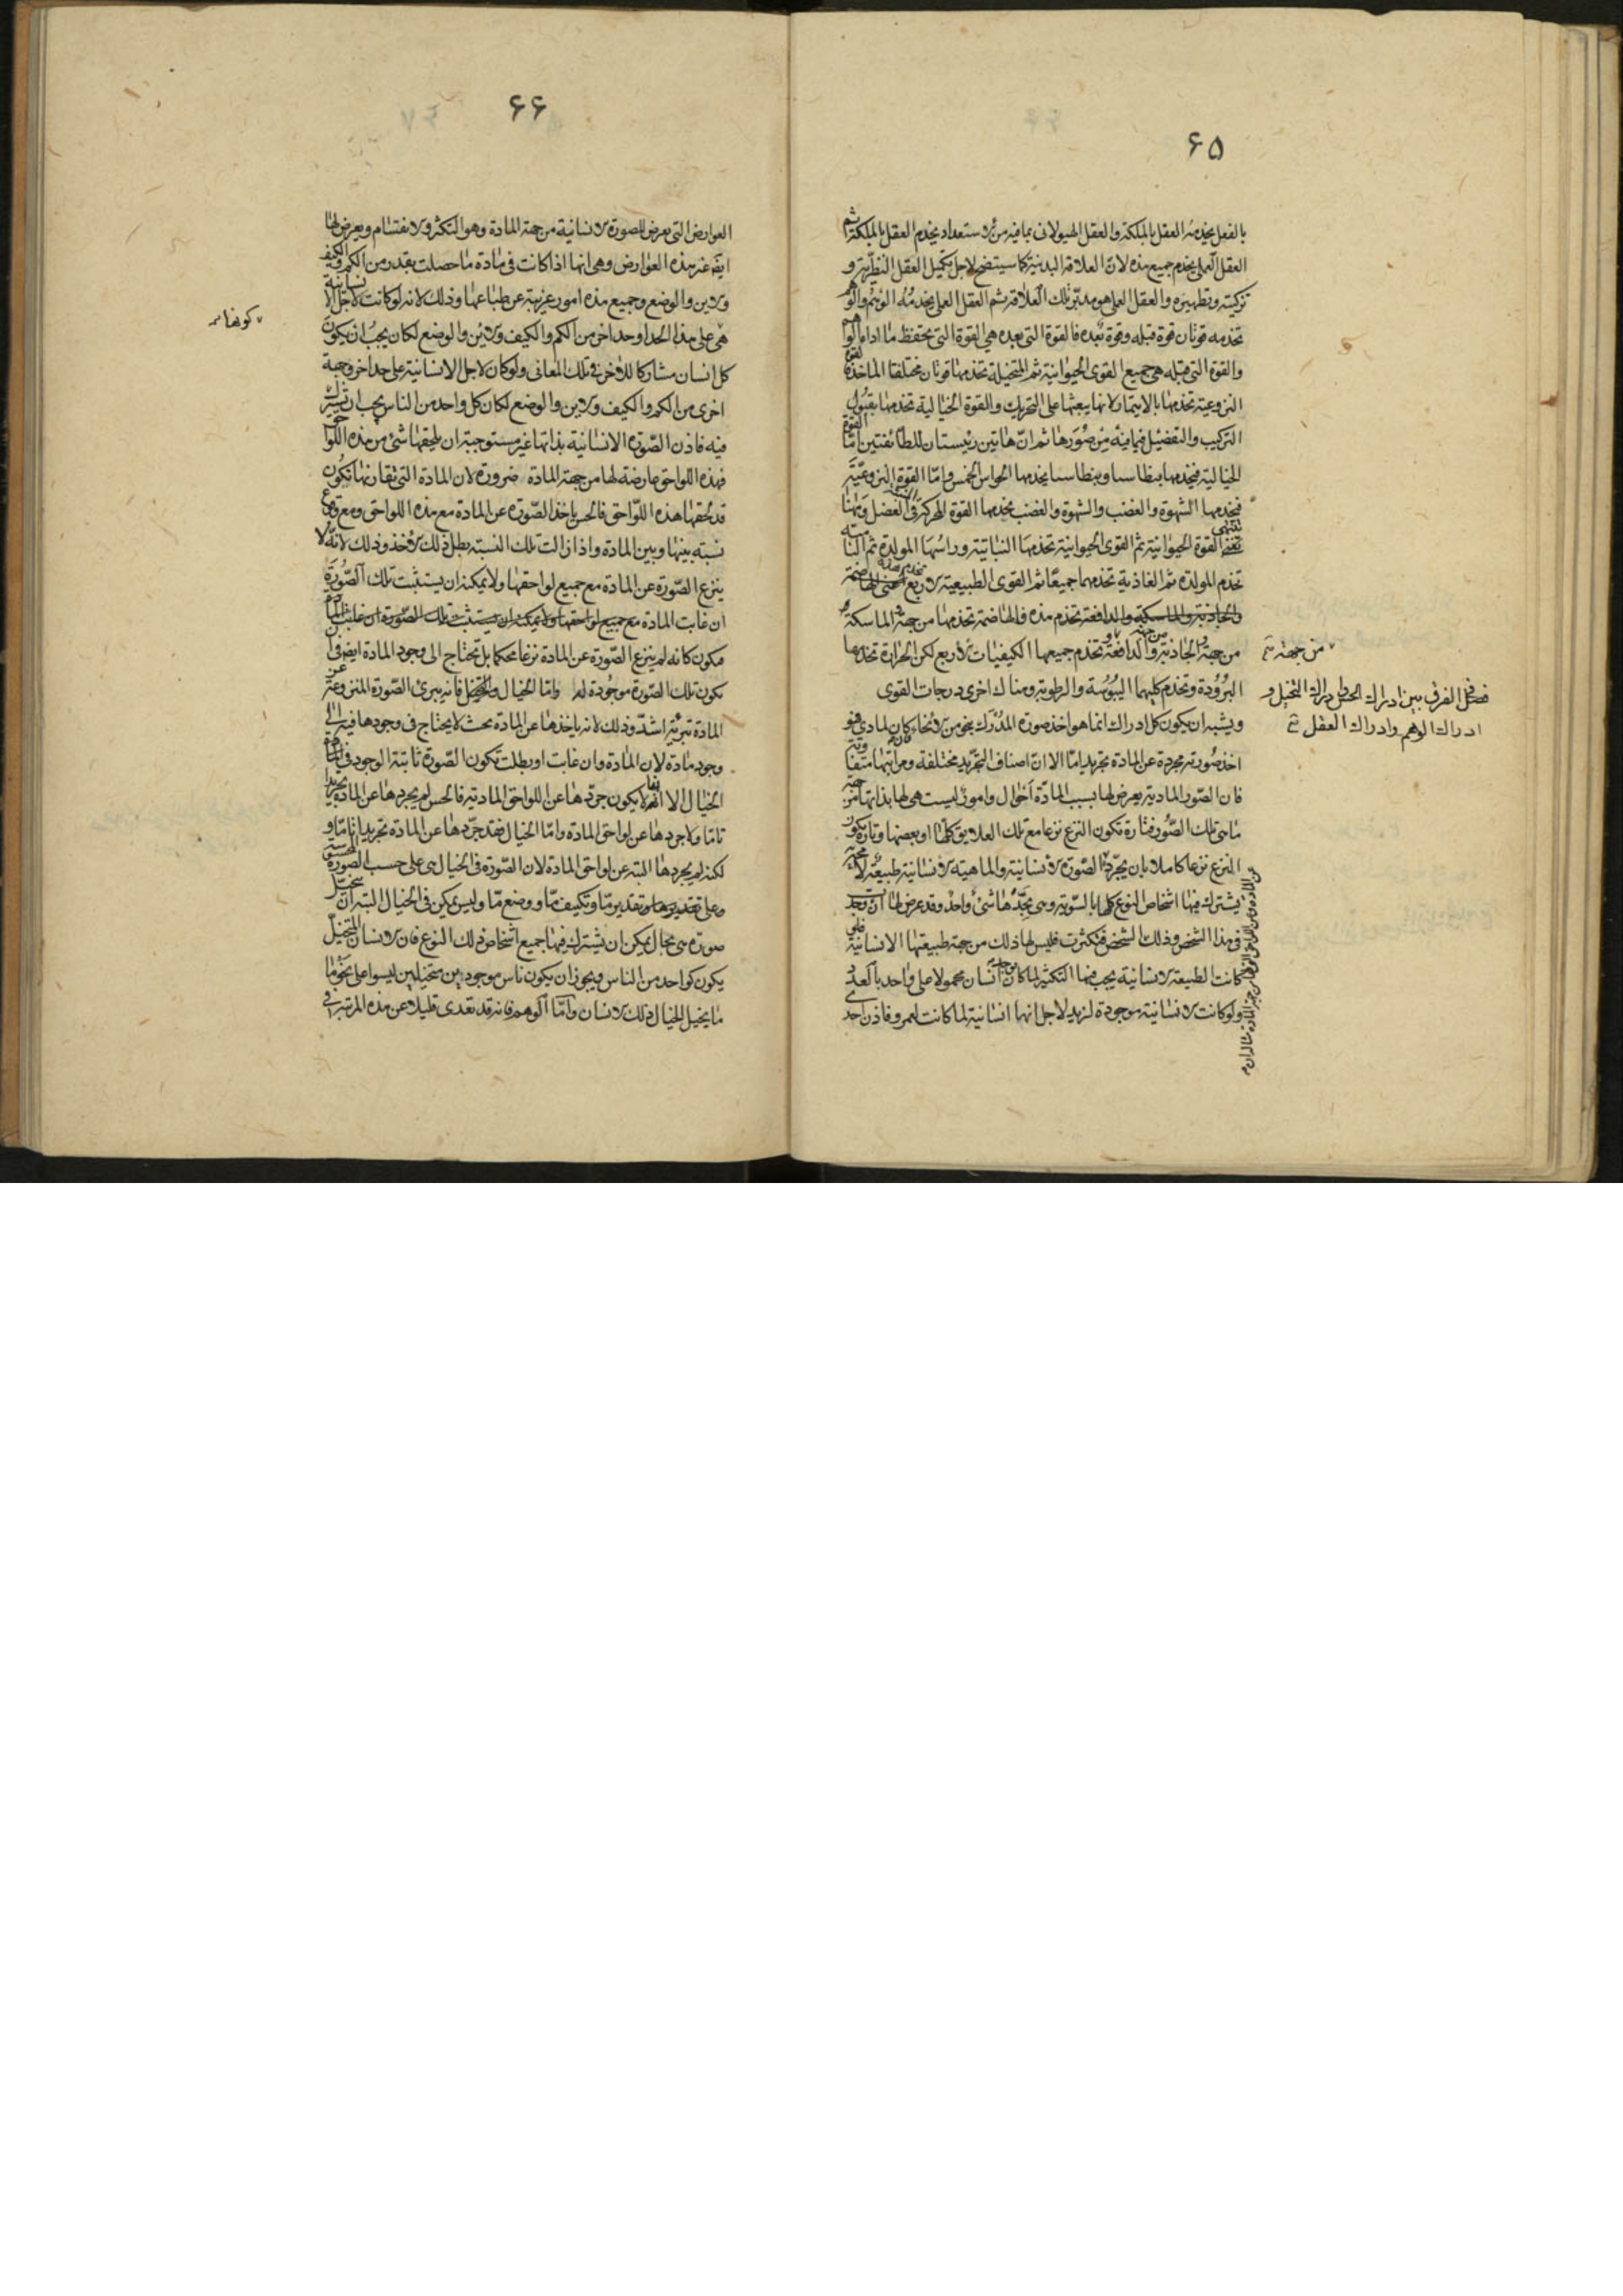 ۶۵
بالفعل يخدمه العقل بالملكة والعقل الهيولانى بما فيه من الاستعداد يخدم العقل بالملكة ثم
العقل العملى يخدم جميع هذه لان العلاقة البدنية كما سيتضح لاجل تكميل العقل النظرى و
تزكيته وتطهيره والعقل العملى هو مدبر تلك العلاقة ثم العقل العملى يخدمه الوهم والوهم
تخدمه قوتان قوة قبله وقوة بعده فالقوة التى بعده هى القوة التى تحفظ ما اداه الوهم
والقوة التى قبله هى جميع القوى الحيوانية ثم المتخيلة تخدمها قوتان مختلفتا الماخذ فالقوة
النزوعية تخدمها بالايتمار لانها يبعثها على التحريك والقوة الخيالية تخدمها بقبول
التركيب والتفصيل فيما فيه من صورها ثم ان هاتين رئيستان للطائفتين اما القوة
الخيالية فيخدمها بنطاسيا وبنطاسيا يخدمها الحواس الخمس واما القوة النزوعية
فيخدمها الشهوة والغضب والشهوة والغضب يخدمهما القوة المحركة فى العضل وههنا
تنتهى القوة الحيوانية ثم القوى الحيوانية تخدمها النباتية وراسها المولدة ثم النامية
تخدم المولدة ثم الغاذية تخدمهما جميعا ثم القوى الطبيعية الاربع تخدم هذه اعنى الهاضمة
والجاذبة والماسكة والدافعة تخدم هذه فالهاضمة تخدمها من جهة الماسكة و
من جهة الجاذبة والدافعة تخدم جميعها الكيفيات الاربع لكن الحرارة تخدمها
البرودة وتخدم كليهما اليبوسة والرطوبة وهناك اخرى درجات القوى
ويشبه ان يكون كل ادراك انما هو اخذ صورة المدرك بنحو من الانحاء فان كان لمادى فهو
اخذ صورته مجردة عن المادة تجريدا ما الا ان اصناف التجريد مختلفة ومراتبها متفاوتة
فان الصور المادية يعرض لها بسبب المادة احوال وامور ليست هى لها بذاتها من جهة
ما هى تلك الصور فتارة تكون النزع نزعا مع تلك العلايق كلها او بعضها وتارة يكون
النزع نزعا كاملا بان يجرد الصورة الانسانية والماهية الانسانية طبيعة لا محة
يشترك فيها اشخاص النوع كلها بالسوية وهى بحدها شئ واحد وقد عرض لها ان وجدت
فى هذا الشخص وذلك الشخص فتكثرت فليس لها ذلك من جهة طبيعتها الانسانية فلو
كانت الطبيعة الانسانية يجب فيها التكثر لما كان انسان محمولا على واحد بالعدد
ولو كانت الانسانية موجودة لزيد لاجل انها انسانية لما كانت لعمرو فاذن احدى
من جهته
فصل الفرق بين ادراك الحس وادراك التخيل و
ادراك الوهم وادراك العقل
۶۶
العوارض التى يعرض للصورة الانسانية من جهة المادة وهو التكثر والانقسام ويعرض لها
ايض غير هذه العوارض وهى انها اذا كانت فى مادة ما حصلت بقدر من الكم والكيف
والاين والوضع وجميع هذه امور غريبة عن طباعها وذلك لانه لو كانت لاجل الانسانية
هى على هذا الحد او حد اخر من الكم والكيف والاين والوضع لكان يجب ان يكون
كل انسان مشاركا للاخر فى تلك المعانى ولو كان لاجل الانسانية على حد اخر وجهة
اخرى من الكم والكيف والاين والوضع لكان كل واحد من الناس يجب ان تشترك
فيه فاذن الصورة الانسانية بذاتها غير مستوجبة ان يلحقها شئ من هذه اللواحق
فهذه اللواحق عارضة لها من جهة المادة ضرورة لان المادة التى تقارنها تكون
قد لحقها هذه اللواحق فالحس ياخذ الصورة عن المادة مع هذه اللواحق ومع وقوع
نسبة بينها وبين المادة واذا زالت تلك النسبة بطل ذلك الاخذ وذلك لانه لا
ينزع الصورة عن المادة مع جميع لواحقها ولا يمكنه ان يستثبت تلك الصورة
ان غابت المادة مع جميع لواحقها ولا يمكنه ان يستثبت تلك الصورة ان غابت المادة
فيكون كانه لم ينزع الصورة عن المادة نزعا محكما بل تحتاج الى وجود المادة ايض فى ان
يكون تلك الصورة موجودة له واما الخيال والتخيل فانه يبرئ الصورة المنزوعة عن
المادة تبرئة اشد وذلك لانه ياخذها عن المادة بحيث لا يحتاج فى وجودها فيه الى
وجود مادة لان المادة وان غابت او بطلت تكون الصورة ثابتة الوجود فى
الخيال الا انها لا يكون جردها عن اللواحق المادية فالحس لم يجردها عن المادة تجريدا
تاما ولا جردها عن لواحق المادة واما الخيال فقد جردها عن المادة تجريدا تاما و
لكنه لم يجردها البتة عن لواحق المادة لان الصورة فى الخيال هى على حسب الصورة المحسوسة
وعلى تقدير ما وتكييف ما ووضع ما وليس يمكن فى الخيال البتة ان يتخيل
صورة هى بحال يمكن ان يشترك فيها جميع اشخاص ذلك النوع فان الانسان المتخيل
يكون كواحد من الناس ويجوز ان يكون ناس موجودين متخيلين ليسوا على نحو ما
ما يخيل الخيال ذلك الانسان واما الوهم فانه قد تعدى قليلا عن هذه المرتبة فى